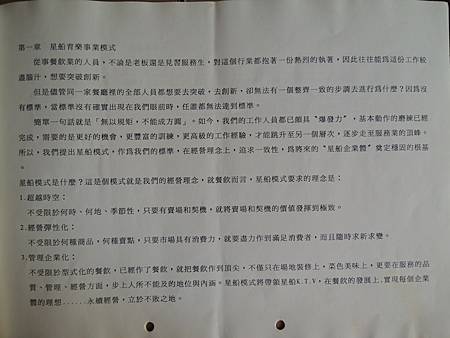 第一章　星船育樂事業模式
從事餐飲業的人員，不論是老板還是見習服務生，對這個行業都抱著一份熱烈的執著，因此往往能為這份工作絞
盡腦汁，想要突破創新。
但是儘管同一家餐廳裡的全部人員都想要去突破，去創新，卻無法有一個整齊一致的步調去進行為什麼？因為沒
有標準，當標準沒有確實出現在我們眼前時，任誰都無法達到標準。
簡單一句話就是「無以規矩，不能成方圓」。如今，我們的工作人員都已頗具〝爆發力〞，基本動作的磨練已經
完成，需要的是更好的機會，更豐富的訓練，更高級的工作經驗，才能跳升至另一個層次，逐步走至服務業的頂峰。
所以，我們提出星船模式，作為我們的標準，在經營理念上，追求一致性，為將來的〝星船企業體〞奠定穩固的根基
。
星船模式是什麼？這是個模式就是我們的經營理念，就餐飲而言，星船模式要求的理念是：
1.超越時空：
不受限於何時、何地、季節性，只要有賣場和契機，就將賣場和契機的價值發揮到極致。
2.經營彈性化：
不受限於何種商品，何種賣點，只要市場具有消費力，就要盡力作到滿足消費者，而且隨時求新求變。
3.管理企業化：
不受限於型式化的餐飲，已經作了餐飲，就把餐飲作到頂尖，不僅只在場地裝修上，菜色美味上，更要在服務的品
質、管理、經營方面，步上人所不能及的地位與內涵。星船模式將帶領星船K.T.V，在餐飲的發展上，實現每個企業
體的理想......永續經營，立於不敗之地。